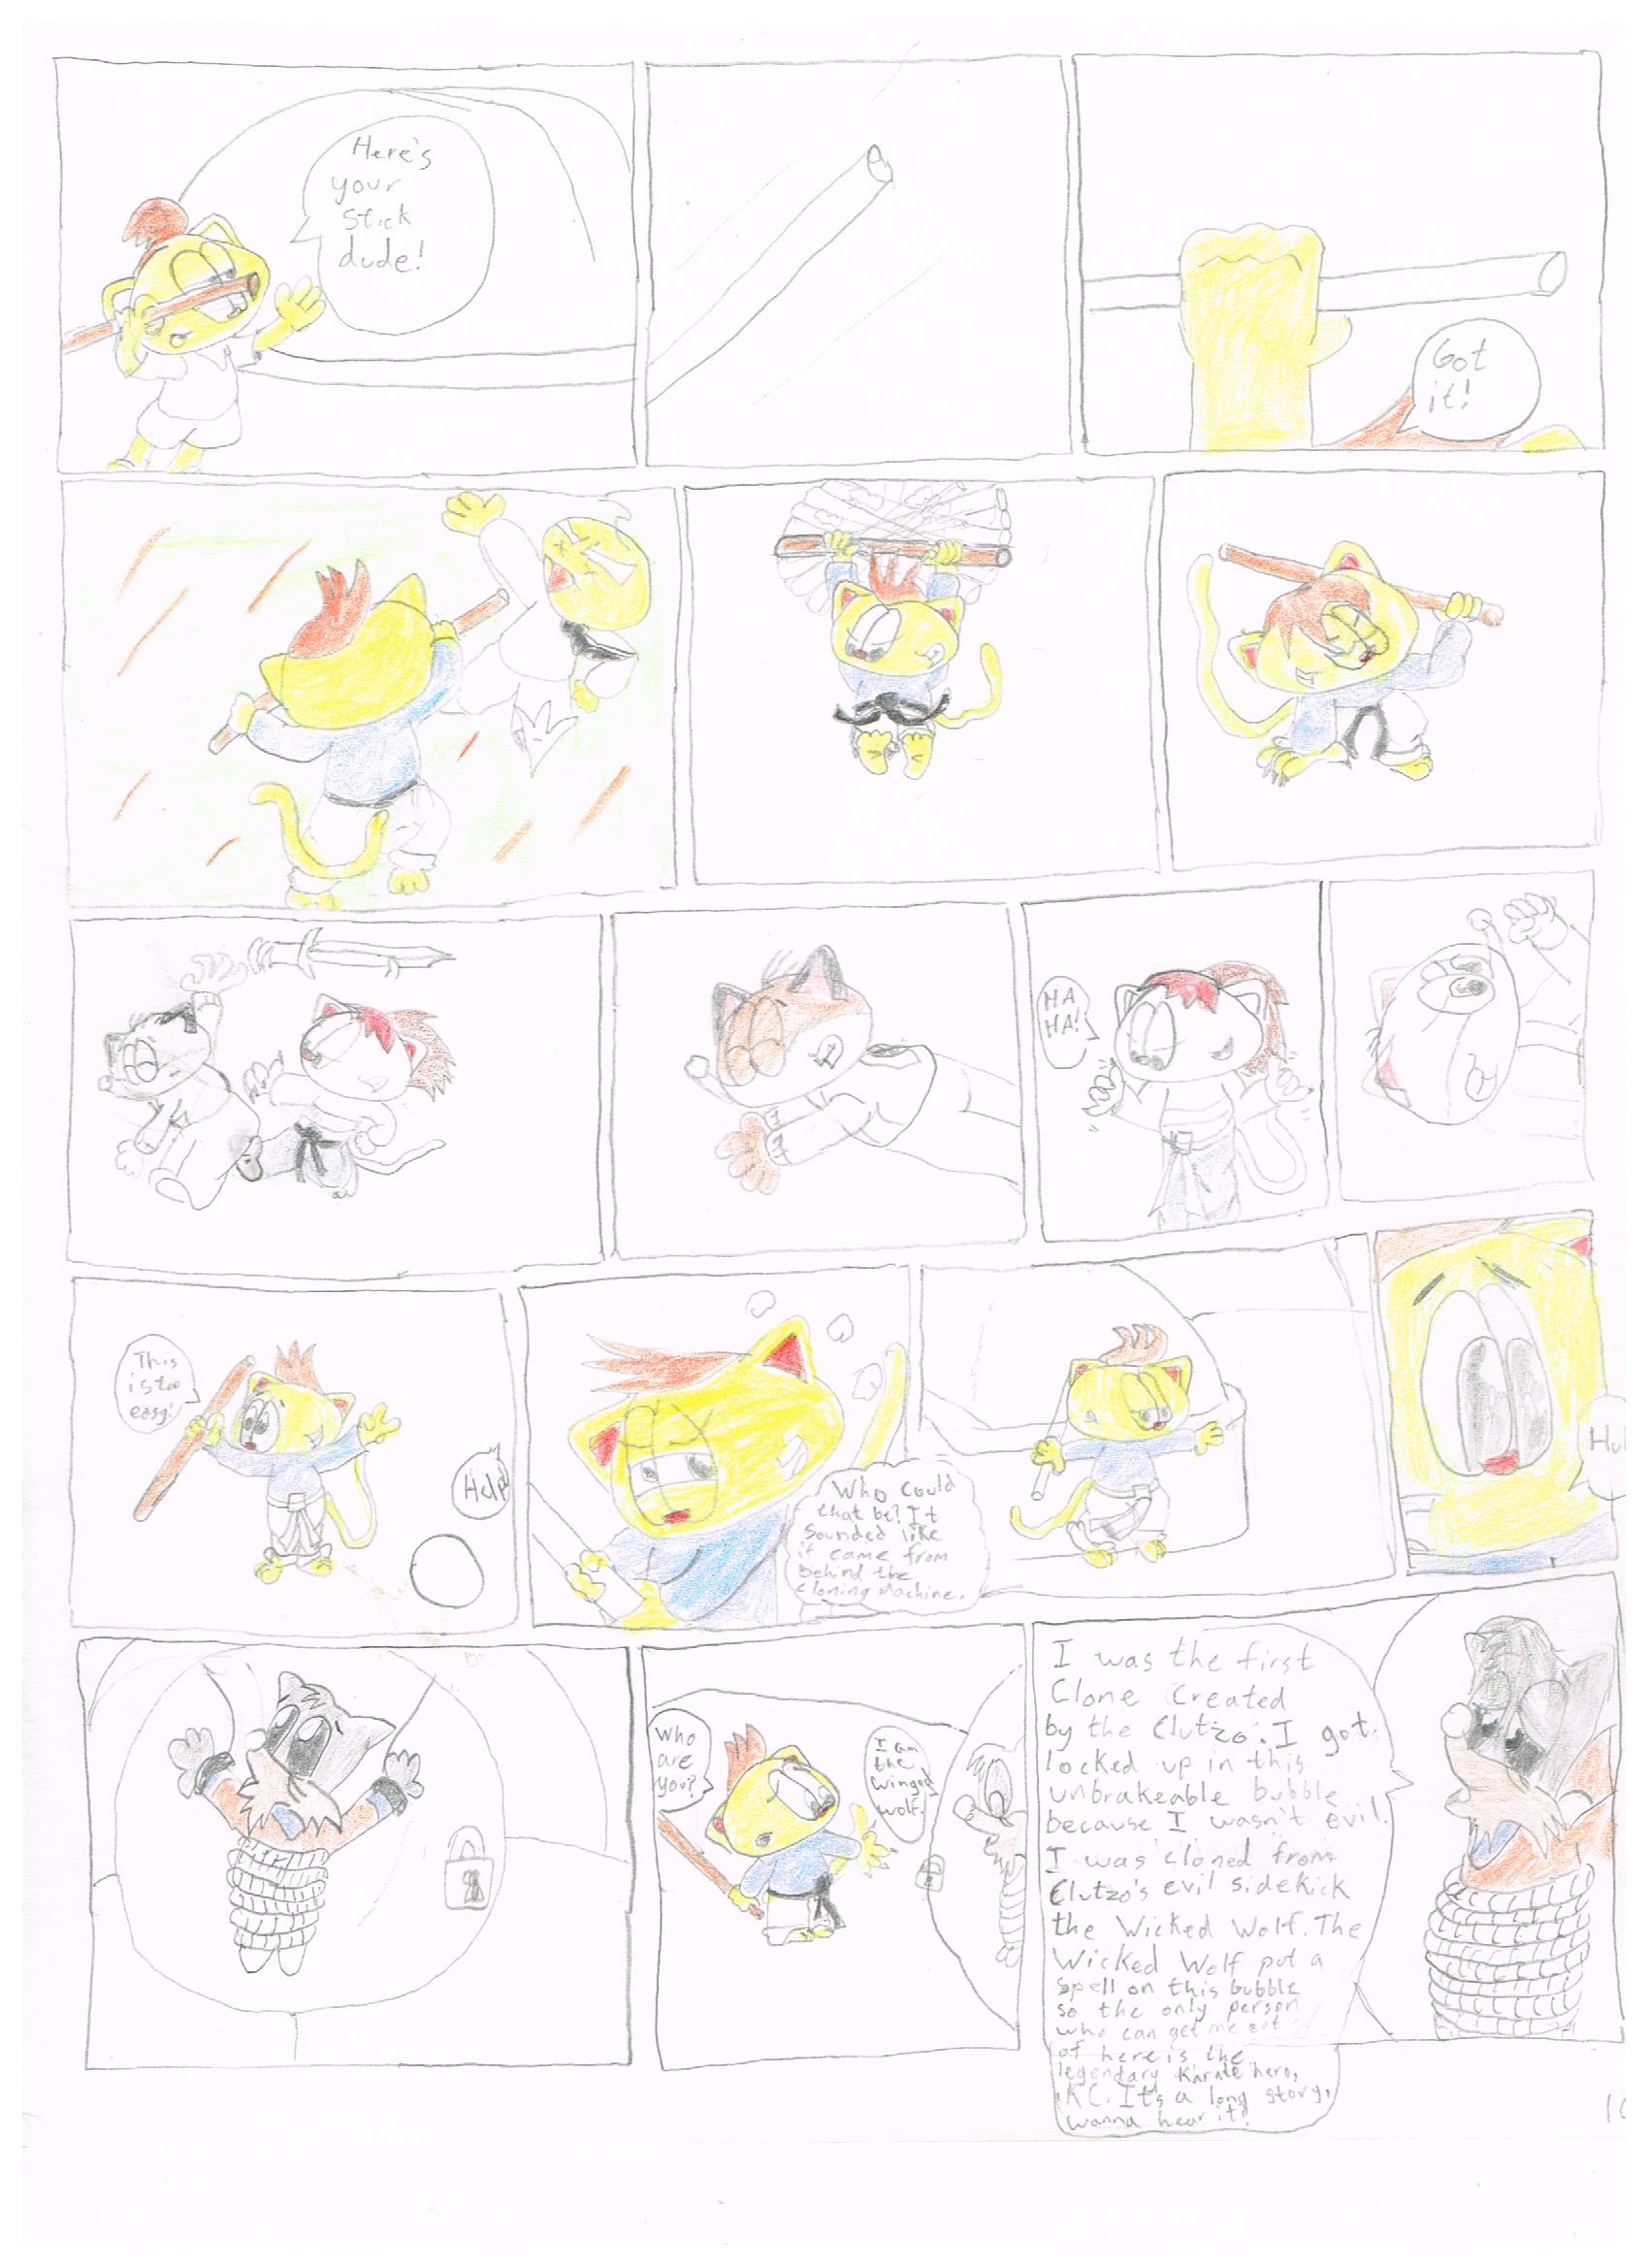 Here's
your
stick
dude!
Got
it!
HA
HA!
This
is too
easy!
Help!
Who could
that be? It
sounded like
it came from
behind the
cloning machine.
Who
are
you?
I am
the
winged
wolf.
I was the first
Clone created
by the Clutzo. I got
locked up in this
unbrakeable bubble
because I wasn't evil.
I was cloned from
Clutzo's evil sidekick
the Wicked Wolf. The
Wicked Wolf put a
spell on this bubble
so the only person
who can get me out
of here is the
legendary Karate hero,
KC. It's a long story,
wanna hear it?